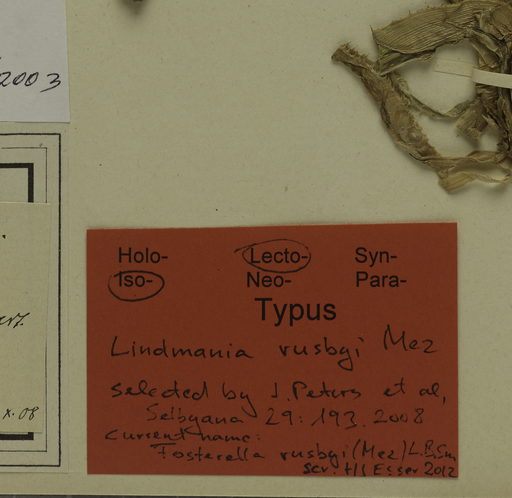 2003
x. 08
Holo- Lecto- Syn-
Iso- Neo- Para-
Typus
Lindmania rusbyi Mez
selected by J. Peters et al,
Selbyana 29: 193. 2008
current name:
Fosterella rusbyi (Mez) L.B.Sm.
scr. HJ Esser 2012